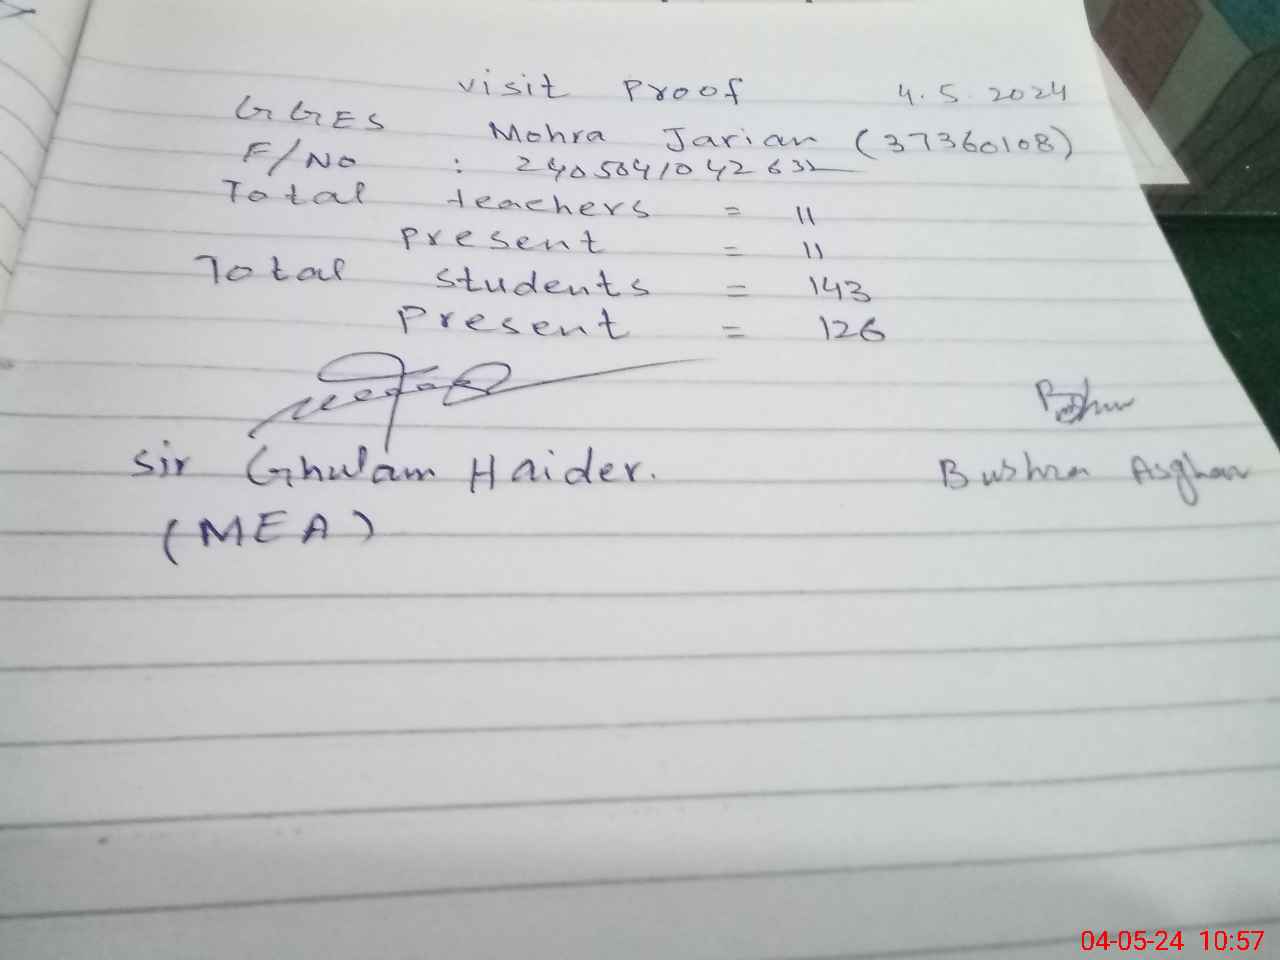 visit Proof 4.5.2024
GGES Mohra Jarian (37360108)
F/No : 2405041042632
Total teachers = 11
Present = 11
Total students = 143
Present = 126
Sir Ghulam Haider.
Bushra Asghar
(MEA)
04-05-24 10:57